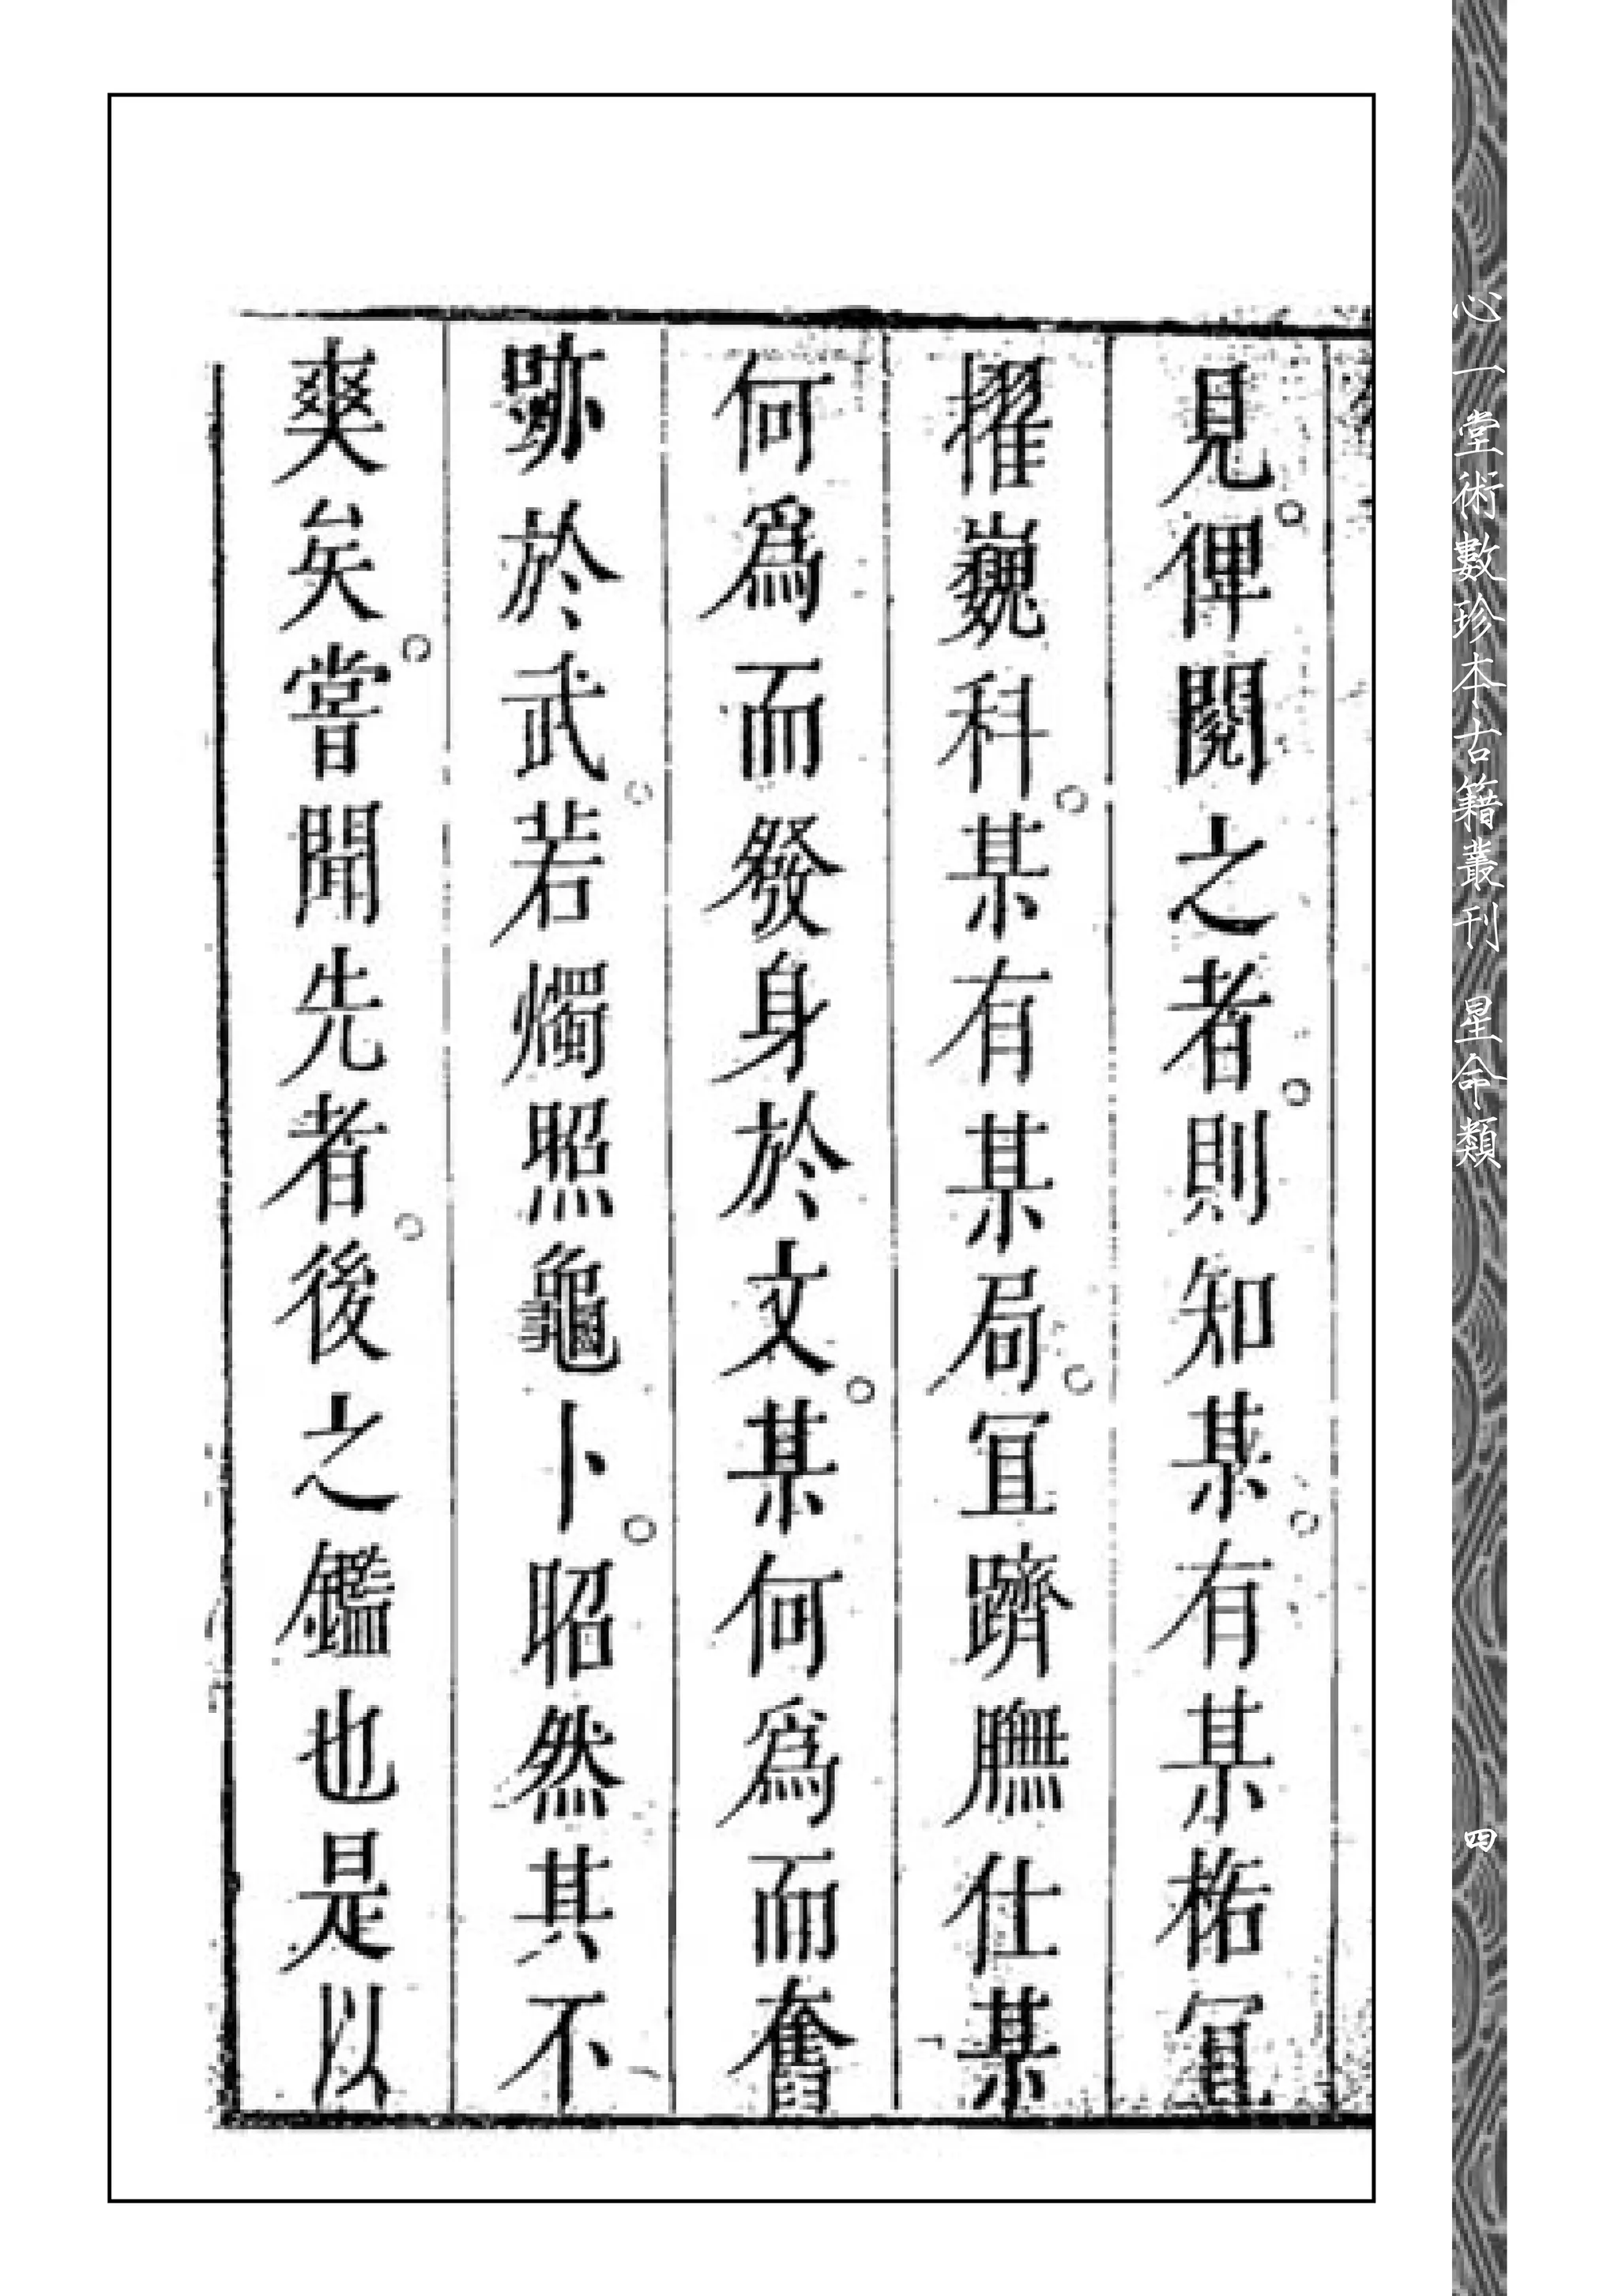 見。俾閱之者。則知某。有某格冝
擢巍科。某有某局。冝躋膴仕某
何爲而發身於文。某何爲而奮
跡於武。若燭照龜卜。昭然其不
爽矣。嘗聞先者。後之鑑也是以
心一堂術數珍本古籍叢刊 星命類
四